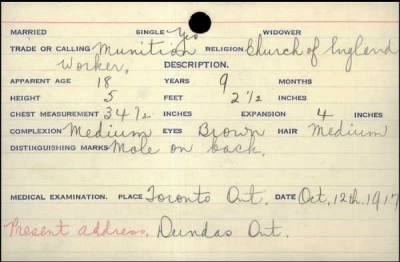 MARRIED SINGLE Yes WIDOWER
TRADE OR CALLING Munition RELIGION Church of England
Worker. DESCRIPTION.
APPARENT AGE 18 YEARS 9 MONTHS
HEIGHT 5 FEET 2 1/2 INCHES
CHEST MEASUREMENT 34 1/2 INCHES EXPANSION 4 INCHES
COMPLEXION Medium EYES Brown HAIR Medium
DISTINGUISHING MARKS Mole on back.
MEDICAL EXAMINATION. PLACE Toronto Ont. DATE Oct. 12th. 1917
Present address. Dundas Ont.